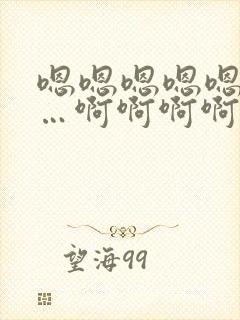 嗯嗯嗯嗯嗯
…啊啊啊啊
望海99